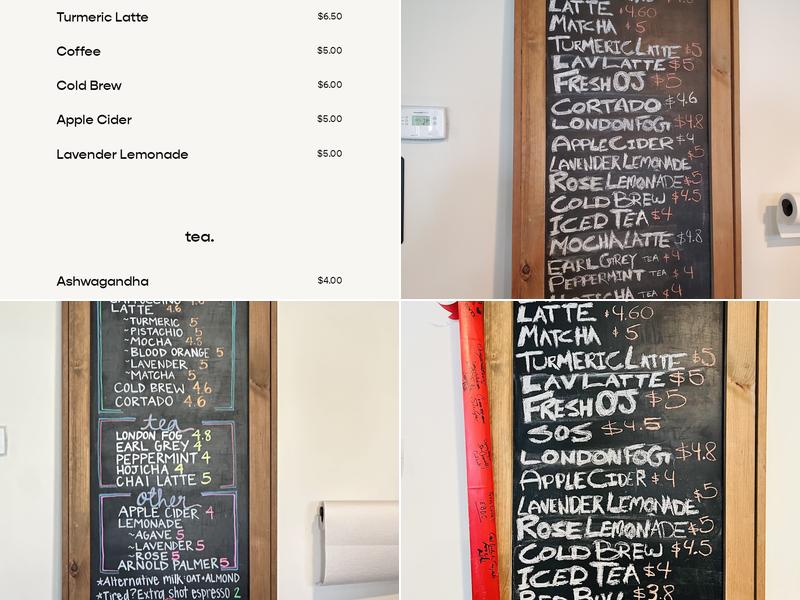 Turmeric Latte $6.50
Coffee $5.00
Cold Brew $6.00
Apple Cider $5.00
Lavender Lemonade $5.00
tea.
Ashwagandha $4.00
LATTE $4.60
MATCHA $5
TURMERIC LATTE $5
LAV LATTE $5
FRESH OJ $5
CORTADO $4.6
LONDON FOG $4.8
APPLE CIDER $4
LAVENDER LEMONADE $5
ROSE LEMONADE $5
COLD BREW $4.5
ICED TEA $4
MOCHA LATTE $4.8
EARL GREY TEA $4
PEPPERMINT TEA $4
HOJICHA TEA $4
CAPPUCCINO
LATTE 4.6
~TURMERIC 5
~PISTACHIO 5
~MOCHA 4.8
~BLOOD ORANGE 5
~LAVENDER 5
~MATCHA 5
COLD BREW 4.6
CORTADO 4.6
tea
LONDON FOG 4.8
EARL GREY 4
PEPPERMINT 4
HOJICHA 4
CHAI LATTE 5
other
APPLE CIDER 4
LEMONADE
~AGAVE 5
~LAVENDER 5
~ROSE 5
ARNOLD PALMER 5
*Alternative milk: OAT + ALMOND
*Tired? Extra shot espresso 2
LATTE $4.60
MATCHA $5
TURMERIC LATTE $5
LAV LATTE $5
FRESH OJ $5
SOS $4.5
LONDON FOG $4.8
APPLE CIDER $4
LAVENDER LEMONADE $5
ROSE LEMONADE $5
COLD BREW $4.5
ICED TEA $4
RED BULL $3.8